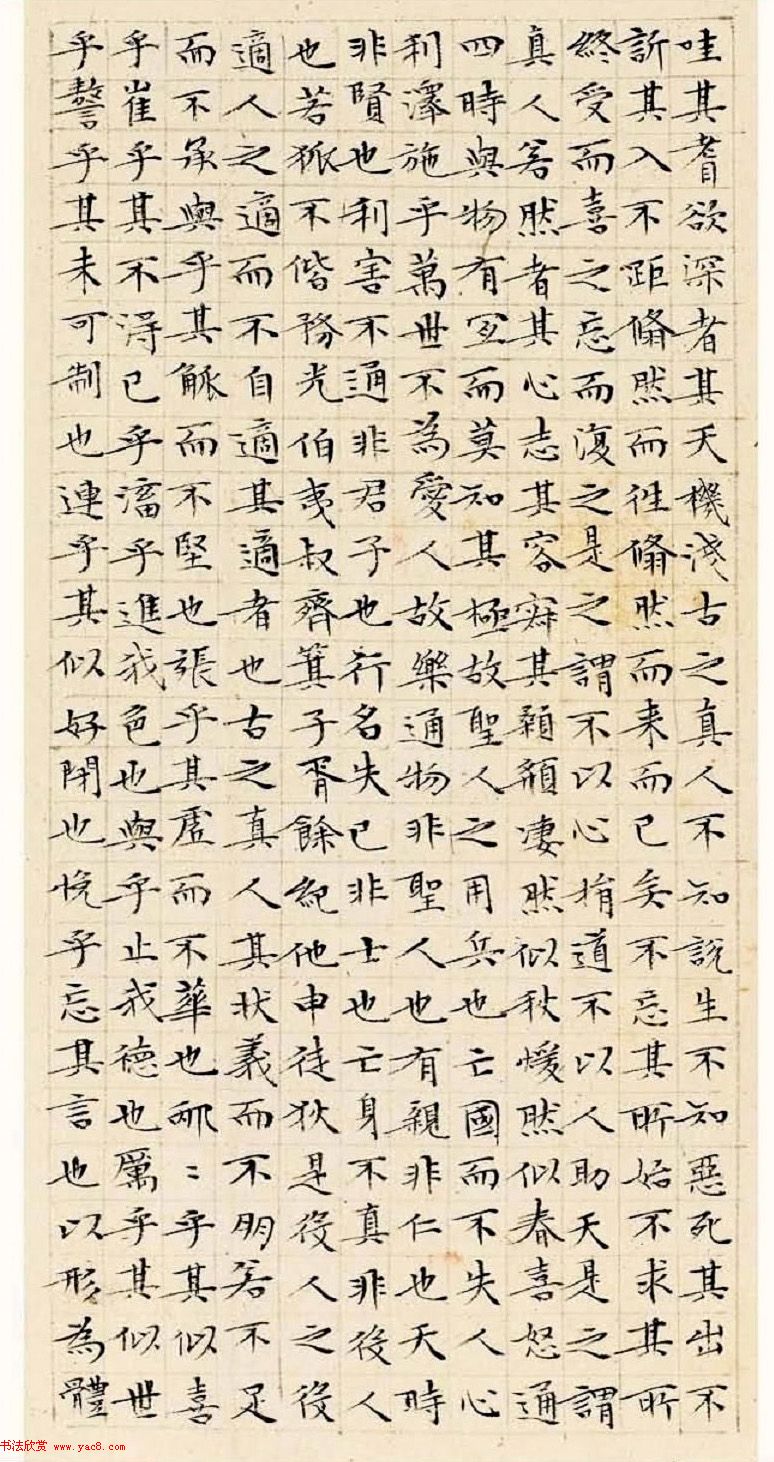 哇其耆欲深者其天機淺古之真人不知説生不知惡死其出不
訢其入不距翛然而徃翛然而来而已矣不忘其所始不求其所
終受而喜之忘而復之是之謂不以心捐道不以人助天是之謂
真人若然者其心志其容寂其顙頯凄然似秋煖然似春喜怒通
四時與物有宜而莫知其極故聖人之用兵也亡國而不失人心
利澤施乎萬世不為愛人故樂通物非聖人也有親非仁也天時
非賢也利害不通非君子也行名失己非士也亡身不真非役人
也若狐不偕務光伯夷叔齊箕子胥餘紀他申徒狄是役人之役
適人之適而不自適其適者也古之真人其狀義而不朋若不足
而不承與乎其觚而不堅也張乎其虛而不華也邴〻乎其似喜
乎崔乎其不得已乎滀乎進我色也與乎止我德也厲乎其似世
乎謷乎其未可制也連乎其似好閉也悗乎忘其言也以形為體
书法欣赏 www.yac8.com